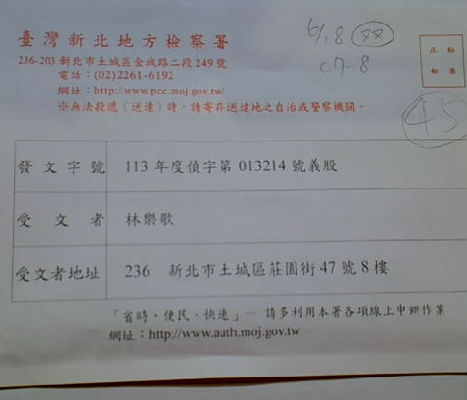 臺灣新北地方檢察署
236-203 新北市土城區金城路二段249號
電話：(02)2261-6192
網址：http://www.pcc.moj.gov.tw/
※無法投遞（送達）時，請寄存送達地之自治或警察機關。
6/18
C7-8
正貼
郵票
45
發文字號 113年度偵字第013214號義股
受文者 林樂歌
受文者地址 236 新北市土城區莊園街47號8樓
「省時、便民、快速」— 請多利用本署各項線上申辦作業
網址：http://www.auth.moj.gov.tw